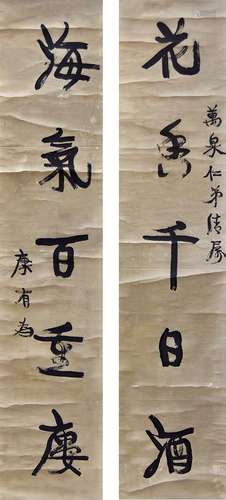 花香千日酒
萬泉仁弟清屬
海氣百重樓
康有為